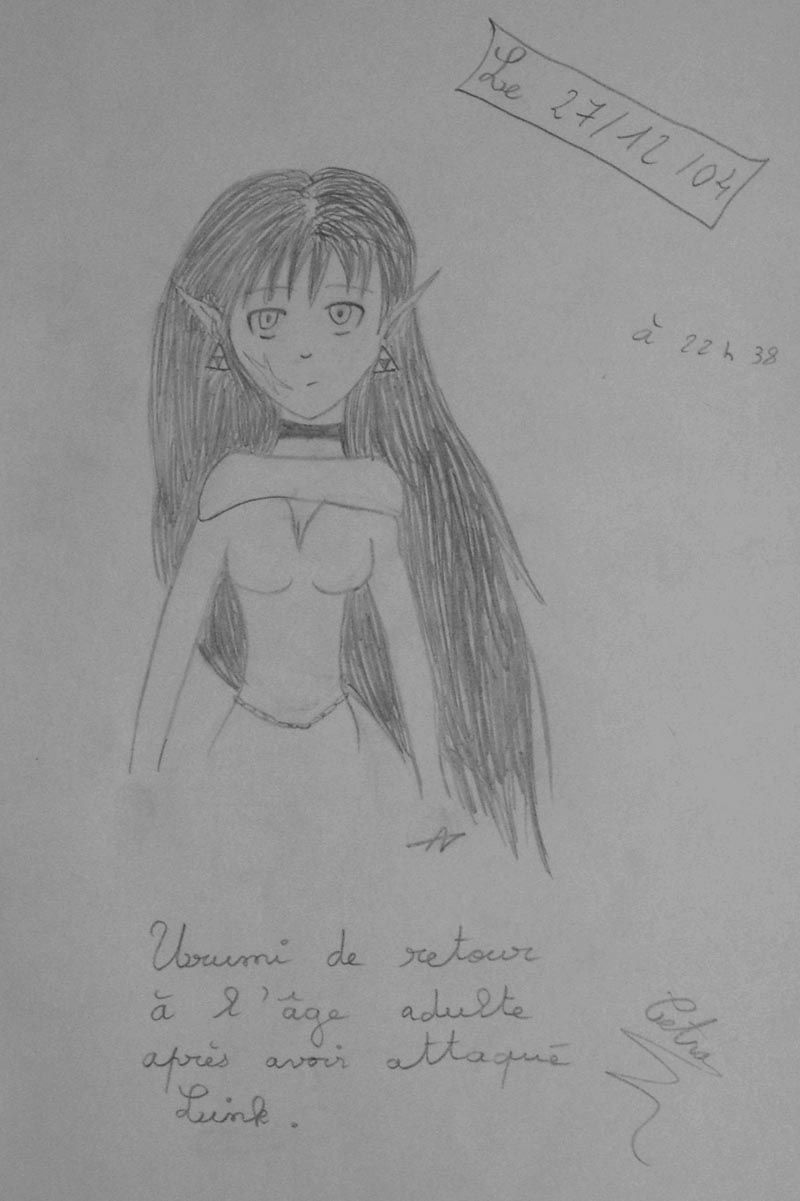 Le 27/12/04
à 22 h 38
Urumi de retour
à l'âge adulte
après avoir attaqué
Link.